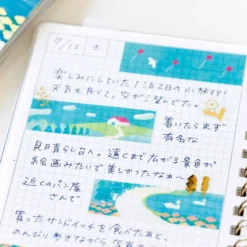 9/10 土
楽しみにしていた1泊2日の小旅行!
天気も良くて、空がご機嫌でした。
着いたらまず
有名な
見晴らし台へ。遠くまで広がる景色が
お絵画みたいで美しかったなぁ〜
近くのパン屋
さんで
買ったサンドイッチを食べたあと、
のんびり歩きながら